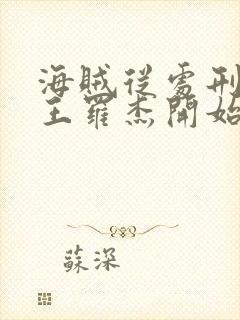 海賊從處刑
王羅杰開始
蘇深